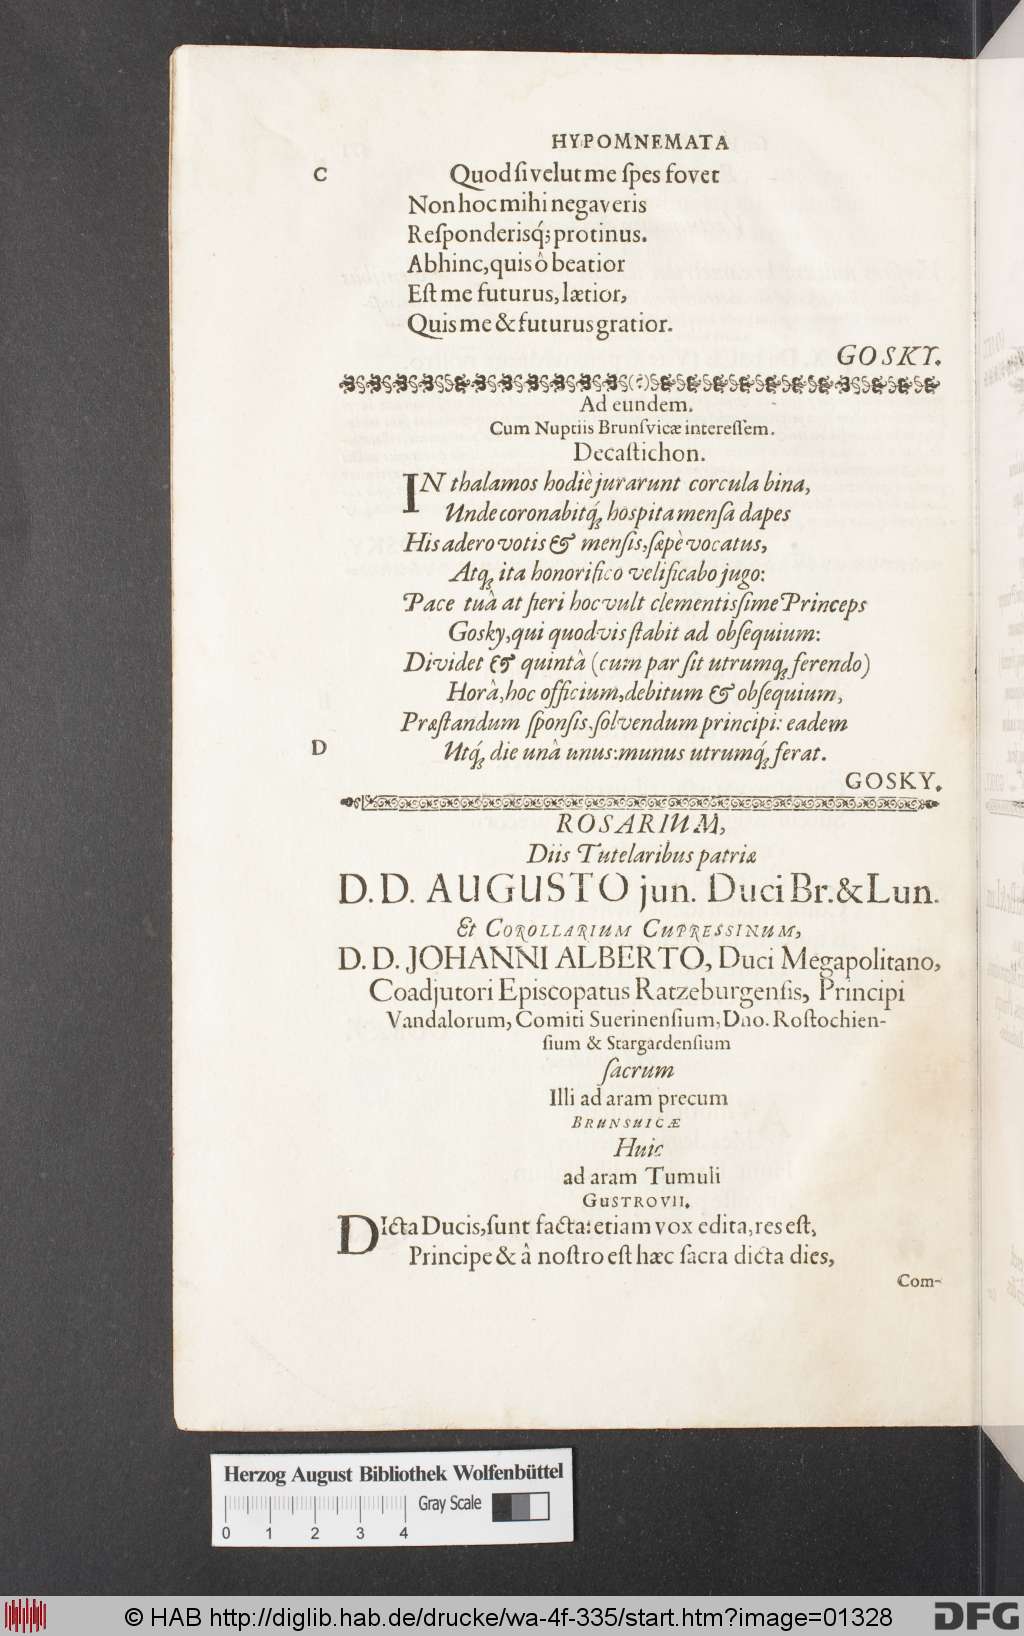 HYPOMNEMATA
C Quod si velut me ſpes fovet
Non hoc mihi negaveris
Reſponderisq́; protinus.
Abhinc, quis ô beatior
Eſt me futurus, lætior,
Quis me & futurus gratior.
GOSKY.
(?)
Ad eundem.
Cum Nuptiis Brunſvicæ intereſſem.
Decaſtichon.
IN thalamos hodiè jurarunt corcula bina,
Unde coronabitq́; hospita menſa dapes
His adero votis & menſis, ſæpè vocatus,
Atq; ita honorifico velificabo jugo:
Pace tuâ at fieri hoc vult clementisſime Princeps
Gosky, qui quodvis ſtabit ad obſequium:
Dividet & quintâ (cum par ſit utrumq; ferendo)
Horâ, hoc officium, debitum & obſequium,
Præſtandum ſponſis, ſolvendum principi: eadem
D Utq́; die unâ unus: munus utrumq́; ferat.
GOSKY.
ROSARIUM,
Diis Tutelaribus patriæ
D. D. AUGUSTO jun. Duci Br. & Lun.
Et COROLLARIUM CUPRESSINUM,
D. D. JOHANNI ALBERTO, Duci Megapolitano,
Coadjutori Episcopatus Ratzeburgenſis, Principi
Vandalorum, Comiti Suerinenſium, Dno. Roſtochien-
ſium & Stargardenſium
ſacrum
Illi ad aram precum
BRUNSUICÆ
Huic
ad aram Tumuli
GUSTROVII.
DIcta Ducis, ſunt facta: etiam vox edita, res eſt,
Principe & â noſtro eſt hæc ſacra dicta dies,
Com-
Herzog August Bibliothek Wolfenbüttel
Gray Scale
0 1 2 3 4
© HAB http://diglib.hab.de/drucke/wa-4f-335/start.htm?image=01328
DFG